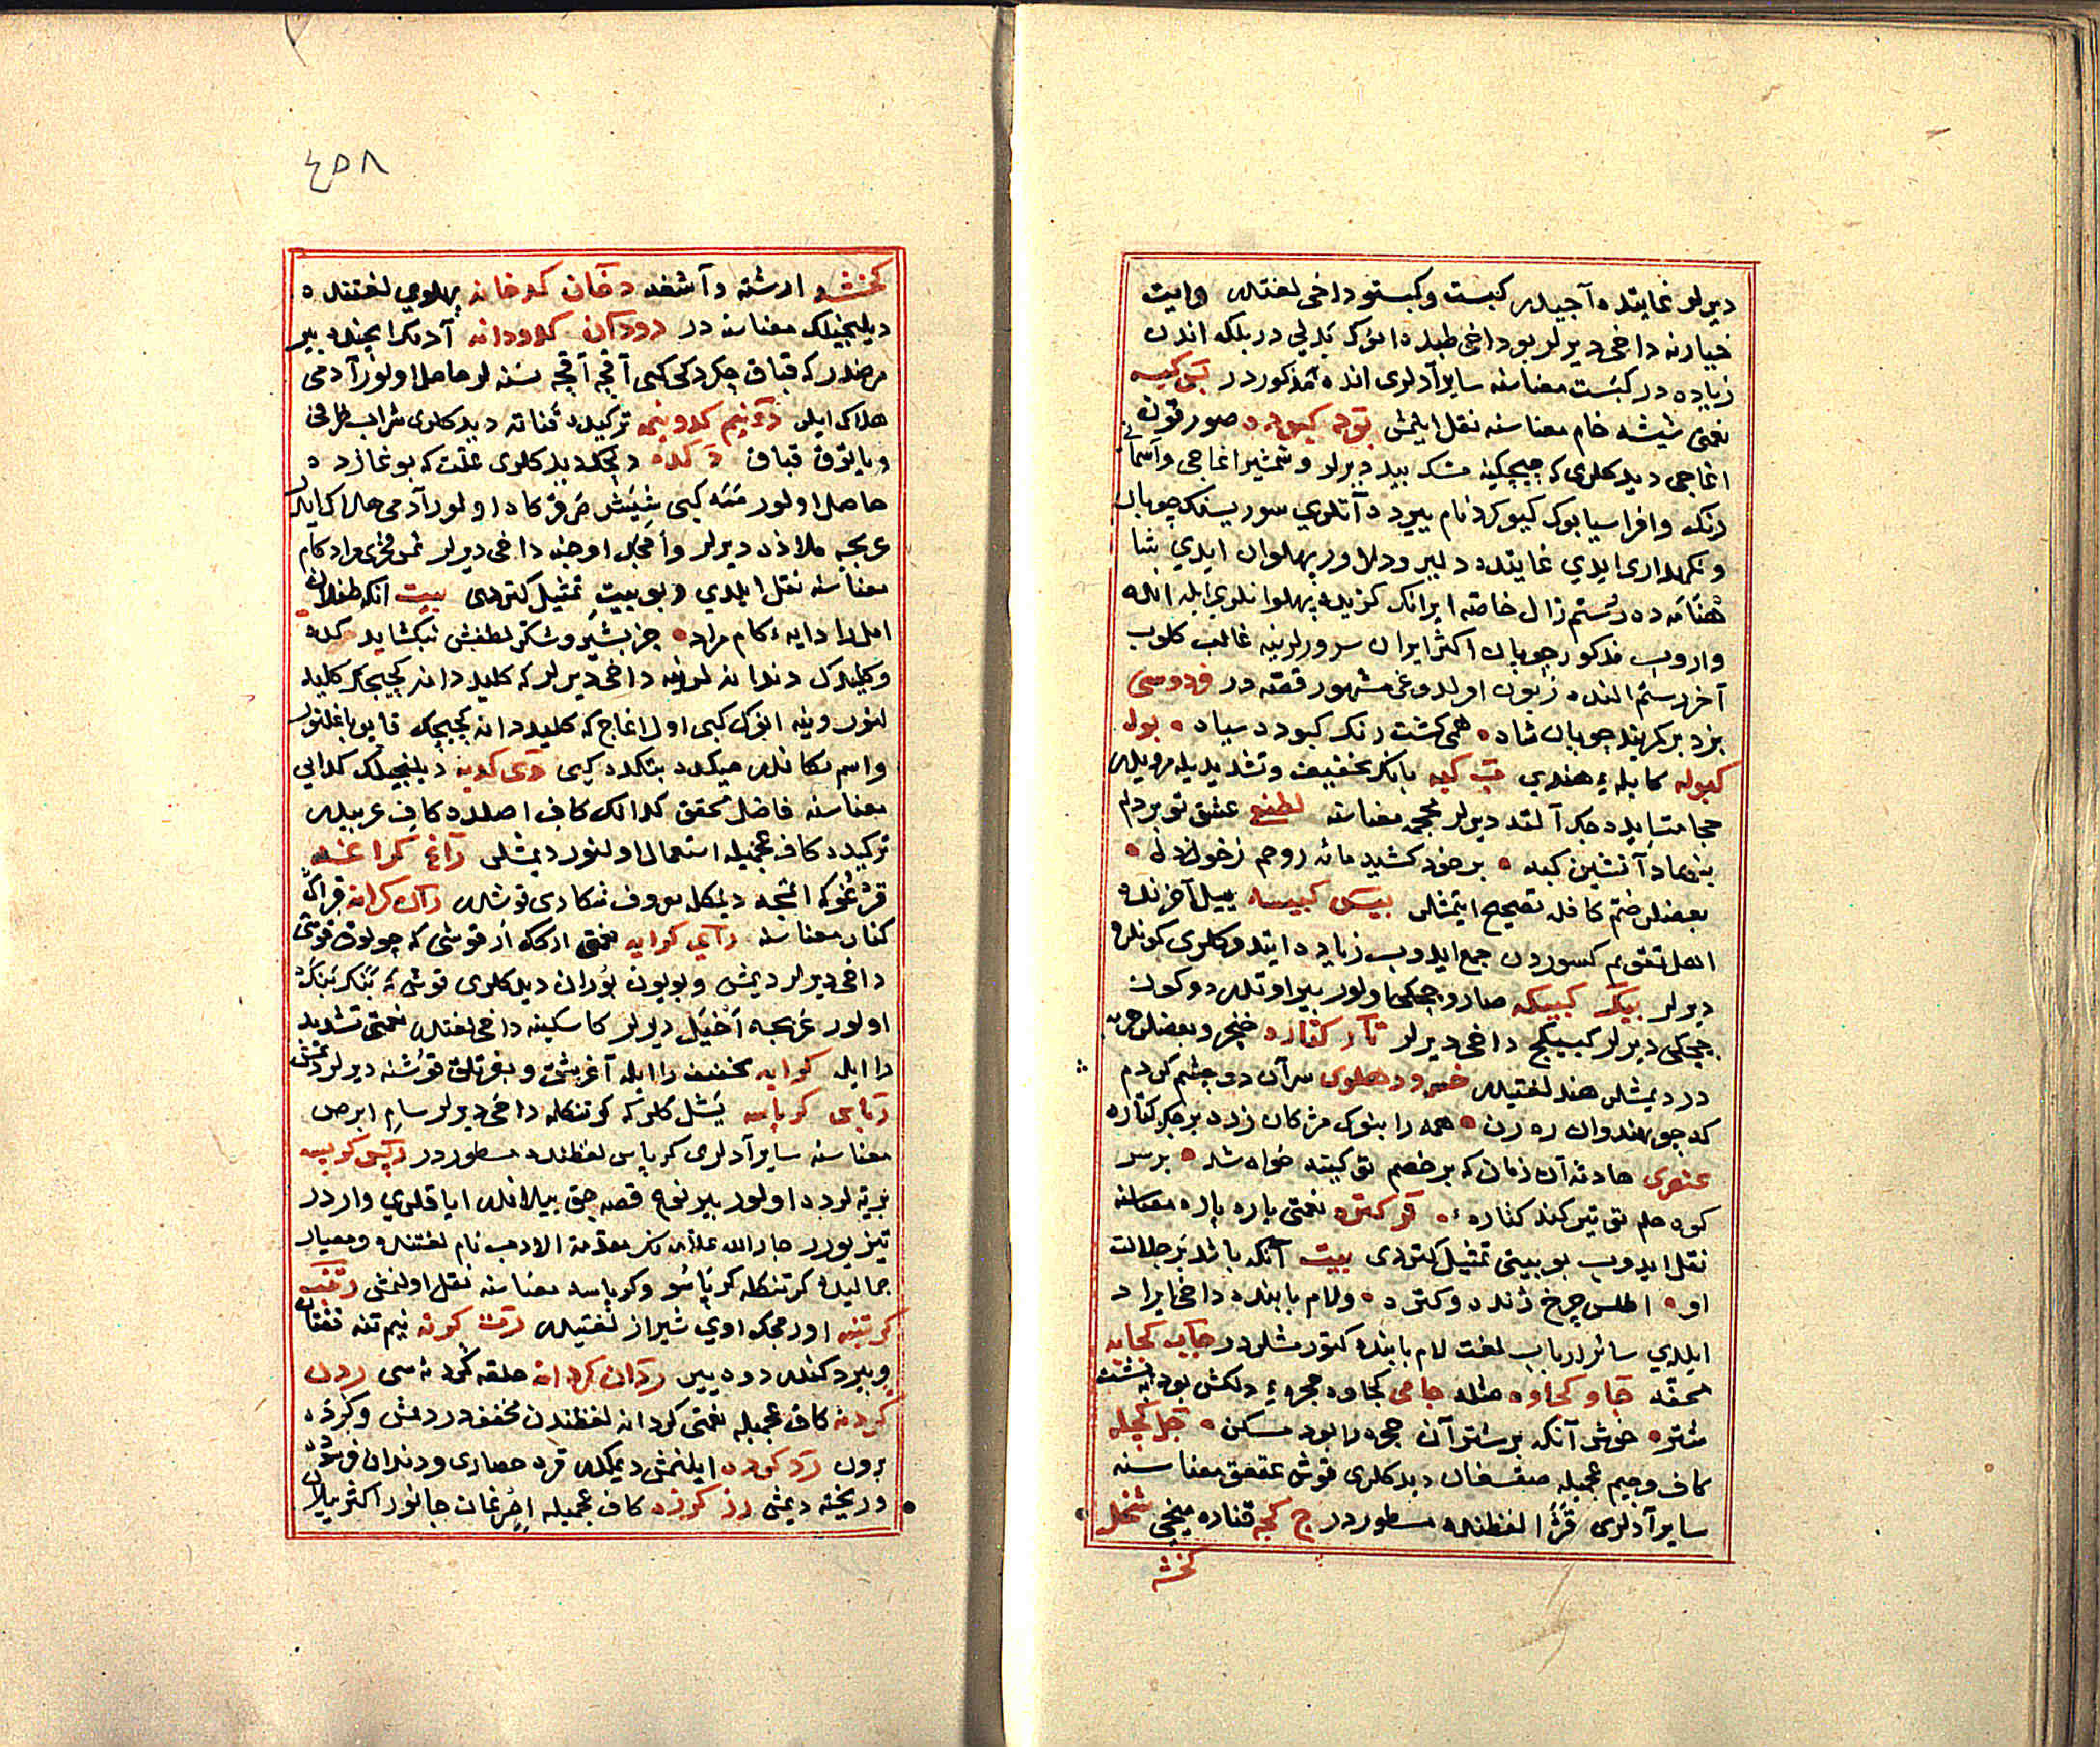 دیرلر غایتده آجیدر کبست وکبستو داخی لغتدر وایت
خیارنه داخی دیرلر بو داخی طبده انوک بدلی در بلکه اندن
زیاده در کبست معناسنه سایر آدلری انده مذکور در بس کبسه
نعمتی شیشه خام معناسنه نقل ایلمش بوده کبوده صور قون
اغاجی دیدکلری که چیچکینه مشک بید دیرلر وشمشیر اغاجی وآسمانی
رنک وافراسیابوک کبوکرد نام بیرده آتلری سوریسنک چوبان
ونکهداری ایدی غایتده دلیر ودلاور پهلوان ایدی بشا
هنامه ده رستم زال خاصه ایرانک کزیده پهلوانلری ایله انده
واروب مذکور چوپان اکثر ایران سرورلرینه غالب کلوب
آخر رستم النده زبون اولدوغی مشهور قصه در فردوسی
بزد بر کمربند چوپان شاه همی کشت رنک کبود سیاه بوله
کبوله کابلهٔ هندی قب کبه بانک تخفیف وتشدیدیله مرویدر
حجامت ایده جک آلتد دیرلر محجمه معناسنه لطفی عشق تو بر دلم
بنهاد آتشین کبه بر خود کشید مانه روحم ز خون دل
بعضلر ضم کافله تصحیح ایتمشلر بیس کبیسه ییل آخرنده
اهل تقویم کسوردن جمع ایدوب زیاده ایتدوکلری کونلره
دیرلر بیک کبیکه صارو چیچکلی اولور بیر اوتدر دوکون
چیچکی دیرلر کبیکج داخی دیرلر تار کتاره خنجر وبعضلر حربه
در دیمشلر هند لغتیدر خسرو دهلوی سر آن دو چشم کردم
که چو هندوان ره زن همه را بنوک مژکان زده بر جکر کتاره
عنصری حادثه آن زمان که بر خصم تو کینه خواه شد بر سر
کوه حلم تو تیر کند کتاره تو کتره نعمتی پاره پاره معناسنه
نقل ایدوب بو بیتی تمثیل کتوردی بیت آنکه باشد بر جلالت
او اطلس چرخ ژنده وکتره ولام بابنده داخی ایراد
ایلدی سائر ارباب لغت لام بابنده کتورمشلر در جاب کجابه
محفه جاو کجاوه مثله جامی کجاوه حجرهٔ دلکش بود به پشت
شتر خوش آنکه بر شتر آن حجره را بود مسکن جل کجله
کاف وجیم عجمیله صقصغان دیدکلری قوش عقعق معناسنه
سایر آدلری قژا لفظنده مسطور در ج کجه قناره میخی شخل
کخشه
٤٥٨
کخشه ارشته وآشفته دخان کدخانه پهلوی لغتنده
دیلنجیلک معناسنه در دودان کدودانه آدمک ایچنده بیر
مرضدر که قباق چکردکی کبی آقجه آقجه نسنه لر حاصل اولور آدمی
هلاک ایلر دو نیم کدو نیمه ترکیده قنانه دیدکلری شراب ظرفی
ویایوق قباق د کده دلجک دیدکلری علت که بوغازده
حاصل اولور ممه کبی شیش مرض کاه اولور آدمی هلاک ایلر
عربجه ملاذه دیرلر وامجک اوجنه داخی دیرلر شمس فخری مراد کام
معناسنه نقل ایلدی وبو بیت تمثیل کتوردی بیت آنکه طفلان
امل را دایهٔ کام مراد جز بشیر وشکر لطفش نکشاید کده
وکلیدک دندانه لرینه داخی دیرلر که کلید دانه کجیجک کلید
لنور وینه انوک کبی اول اغاج که کلید دانه کجیجک قاپو باغلنور
واسم مکاندر میکده بتکده کبی دی کدیه دیلنجیلک کدایی
معناسنه فاضل محقق کدا لک کاف اصلده کاف عربیدر
ترکیده کاف عجمیله استعمال اولنور دیمشلر راغ کراغه
قرغو که اتمجه دیمکله معروف شکاری قوشدر ران کرانه قراک
کنار معناسنه رای کرایه نعمتی ارکک از قوشی که چولوق قوشی
داخی دیرلر دیمش وبویون بوران دیدکلری قوش که بنک بنک
اولور عربجه اخیل دیرلر کاسکینه داخی لغتدر نعمتی تشدید
را ایله کرایه تخفیف را ایله آغر بشق وبغرتلق قوشنه دیرلر دیمش
رباس کرباسه یشل کلر که کرتنکله داخی دیرلر سام ابرص
معناسنه سایر آدلری کرباس لفظنده مسطور در ربس کربسه
بریه لرده اولور بیر نوع قصه جق ییلاندر ایاقلری واردر
تیز یورر جار الله علامه نک مقدمة الادب نام لغتنده ومعیار
جمالیده کرتنکله کرباسو وکرپاسه معناسنه نقل اولنمش رتنه
کرتنه اورمجک اوی شیراز لغتیدر رت کرته نیم تنه قفتان
وبیر دکندر دوه ییر ردان کردانه حلقه کرده سی ردن
کردنه کاف عجمیله نعمتی کردانه لفظندن مخفف در دیمش وکرده
برون رد کرده ایلنمش دیمکدر قره حصاری ودندان فرسوده
وریخته دیمش رز کرزه کاف عجمیله احرغان جانور اکثر ییلان